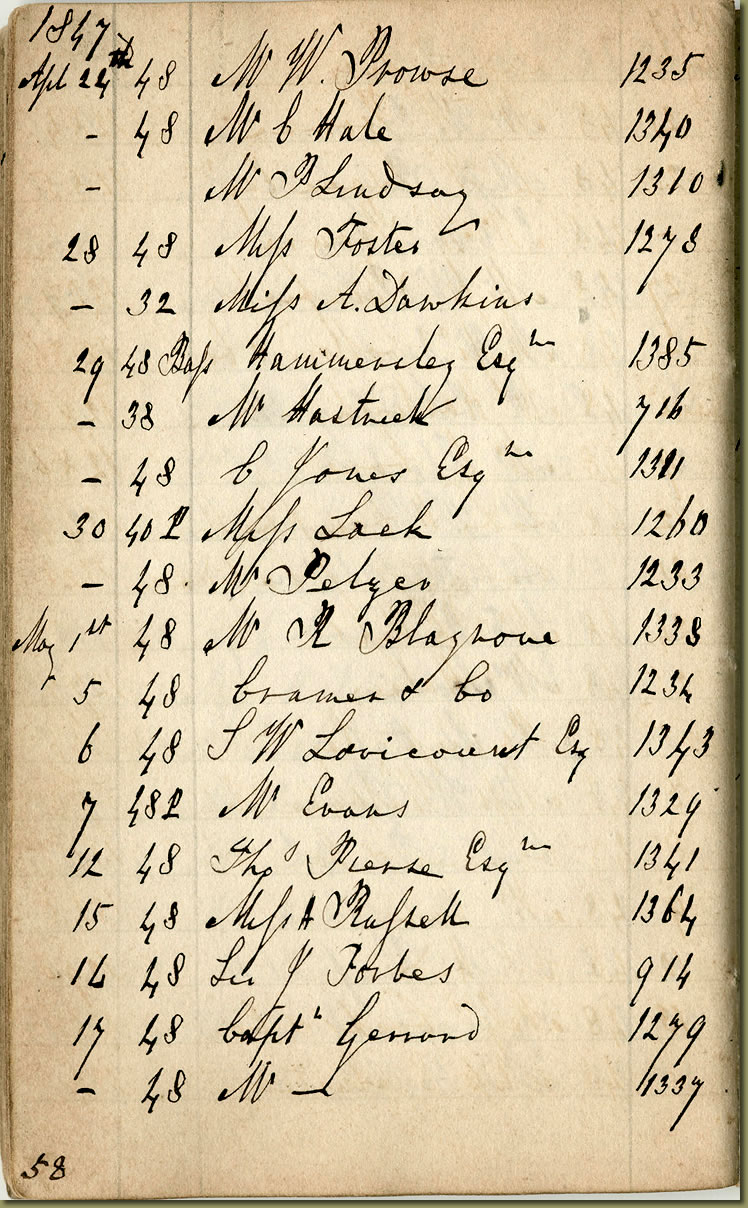 1847
Apl 24th 48 Mr W. Prowse 1235
- 48 Mr C Hale 1340
- Mr P Lindsay 1310
28 48 Miss Foster 1278
- 32 Miss A. Dawkins
29 48 Bass Hammersley Esqre 1385
- 38 Mr Hastrick 716
- 48 C Jones Esqre 1311
30 40 P Miss Lack 1260
- 48 Mr Pelzer 1233
May 1st 48 Mr R Blagrove 1338
5 48 Cramer & Co 1234
6 48 S W Lovicourt Esq 1343
7 48 P Mr Evans 1329
12 48 Thos Pierse Esqre 1341
15 48 Miss H Russell 1364
16 48 Sir J Forbes 914
17 48 Captn Gerrard 1279
- 48 Mr — 1337
58